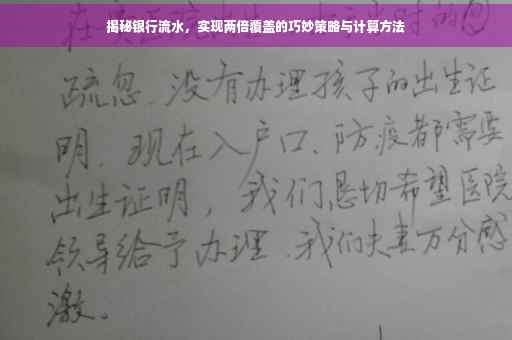 揭秘银行流水，实现两倍覆盖的巧妙策略与计算方法
疏忽、没有办理孩子的出生证
明、现在入户口、防疫都需要
出生证明，我们恳切希望医院
领导给予办理、我们夫妻万分感
激。